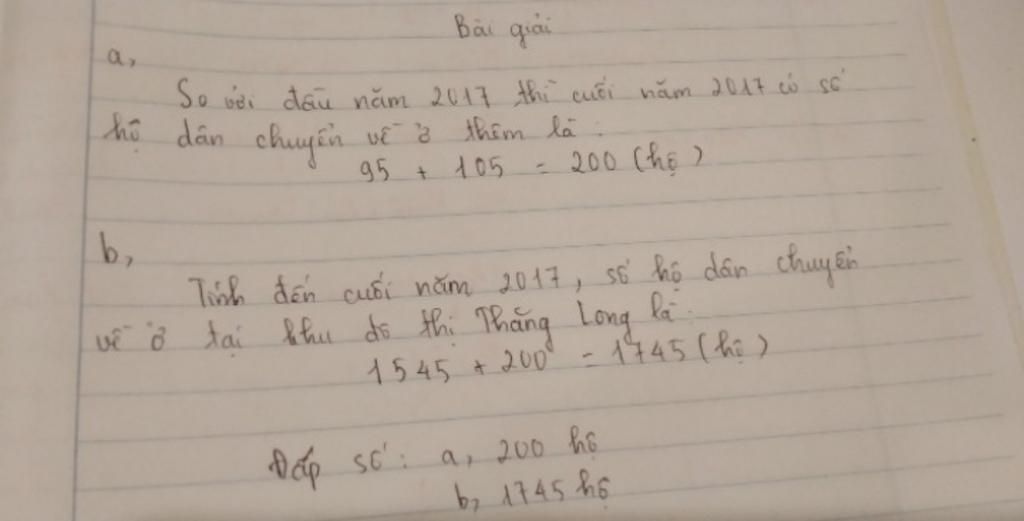 Bài giải
a,
So với đầu năm 2017 thì cuối năm 2017 có số
hộ dân chuyển về ở thêm là :
95 + 105 = 200 (hộ)
b,
Tính đến cuối năm 2017, số hộ dân chuyển
về ở tại khu đô thị Thăng Long là :
1545 + 200 = 1745 (hộ)
Đáp số : a, 200 hộ
b, 1745 hộ